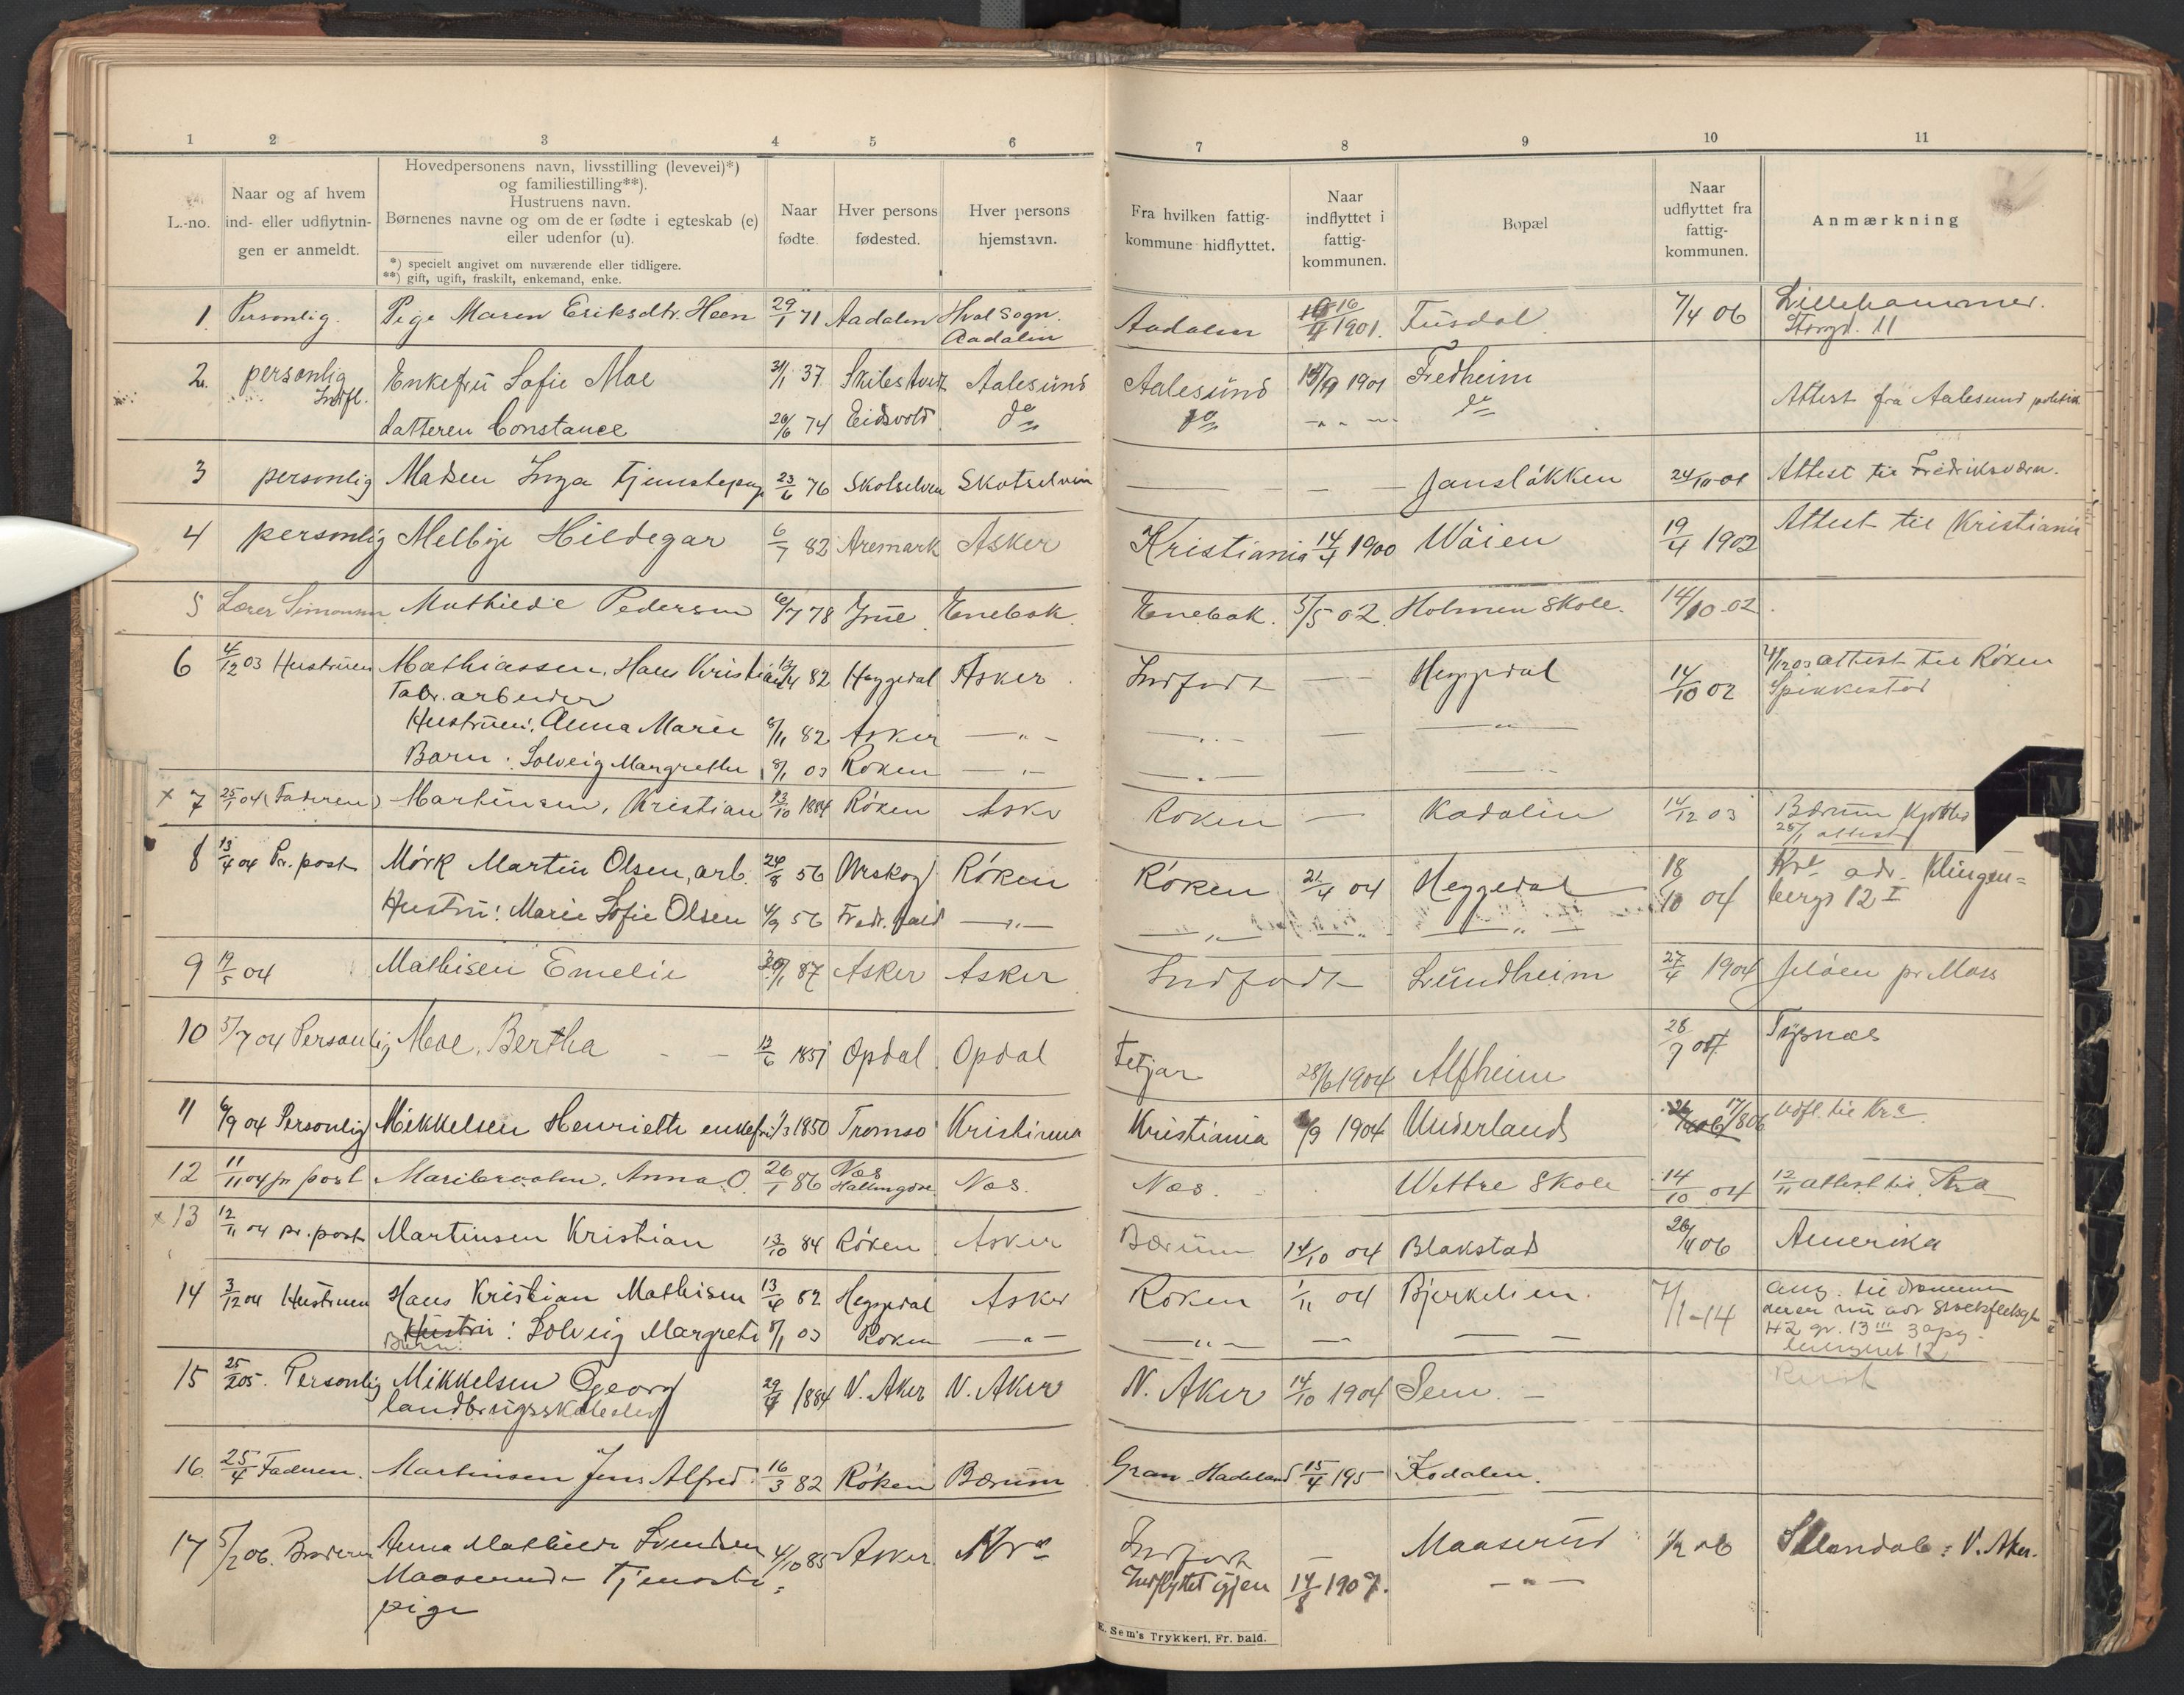 1 2 3 4 5 6 7 8 9 10 11
L.-no.
Naar og af hvem
ind- eller udflytnin-
gen er anmeldt.
Hovedpersonens navn, livsstilling (levevei)*)
og familiestilling**).
Hustruens navn.
Børnenes navne og om de er fødte i egteskab (e)
eller udenfor (u).
*) specielt angivet om nuværende eller tidligere.
**) gift, ugift, fraskilt, enkemand, enke.
Naar
fødte.
Hver persons
fødested.
Hver persons
hjemstavn.
Fra hvilken fattig-
kommune hidflyttet.
Naar
indflyttet i
fattig-
kommunen.
Bopæl
Naar
udflyttet fra
fattig-
kommunen.
Anmærkning
1. Personlig. Pige Maren Eriksdtr. Heen 29/1 71 Aadalen Hval Sogn. Aadalen 16/4 1901. Fusdal 7/4 06 Lillehammer.
Aadalen Storgd. 11
2. personlig Enkefru Sofie Moe 31/1 37 Aalesund Aalesund 1901 Fredheim
Indfl. Attest fra Aalesund
datteren Constance 20/6 74 Eidsvold do do do
3 personlig Madsen Inga Tjenstepige 23/6 76 Skotselven Skotselven — — Jansløkken 24/10-01 Attest til Fredriksværn.
4 personlig Melbye Hildegar 6/7 82 Aremark Asker Kristiania 14/4 1900 Wøien 19/4 1902 Attest til Kristiania
5 Lærer Simonsen Mathilde Pedersen 6/7 78 Enebak. Enebak. 5/5 02. Holmen Skole. 14/10-02.
6 4/12 03 Hustruen Mathiassen, Hans Kristian 13/4 82 Heggedal Asker Indfødt — Heggedal 14/10 02 4/12 03 attest til Røken
Fabr. arbeider Spikkestad
Hustruen: Anna Marie 8/11 82 Asker —"— —"— — —"—
Barn: Solveig Margrethe 8/1 03 Røken —"— —"— —"—
x 7 25/1 04 (Faderen) Martinsen, Kristian 13/10 1884 Røken Asker Røken — Kadalen 14/12 03 Bærum
25/1 attest
8 13/4 04 Pr. post Mørk Martin Olsen, arb. 24/8 56 Urskog Røken Røken 21/4 04 Heggedal 18/10 04 Kra adr. Klingen=
bergs 12 I
Hustru: Marie Sofie Olsen 4/9 56 Fredr.hald —"— —"— —"— —"—
9 19/5 04 Mathisen Emelie 87 Asker Asker Indfødt Lundheim 27/4 1904 Jeløen pr Moss
10 5/7 04 Personlig Moe, Bertha 12/6 1851 Opdal Opdal 28/6 1904 Alfheim Tysnæs
11 6/9 04 Personlig Mikkelsen Henriette enkefru 1/3 1850 Tromsø Kristiania Kristiania 6/9 1904 Underland 17/8 06 Udfl. til Kra
12 11/11 04 pr post Anna O. 26/1 86 Næs Næs. Næs. Wettre Skole 14/10 04 12/11 attest til Kra
Hallingdal
x 13 12/11 04 pr. post Martinsen Kristian 13/10 84 Røken Asker Bærum 14/10 04 Blakstad 26/4 06 Amerika
14 3/12 04 Hustruen Hans Kristian Mathisen 13/4 82 Heggedal Asker Røken 1/11 04 Bjerkelien. 7/1-14 ang. til Drammen
Hustru: Solveig Margrete 8/1 03 Røken —"— —"— — — —
Barn:
42 gr. 13 III 3 opg.
15 25/2 05. Personlig Mikkelsen Georg 1884 V. Aker V. Aker V. Aker 14/10 1904 Sem. —
landbrugsskoleelev
16. 25/4 Faderen. Martinsen Jens Alfred. 16/3 82 Røken Bærum Gran-Hadeland 15/4 195 Kodalen.
17 5/2 06. Broderen Anna Mathilde Svendsen 4/10 85 Asker. Kra Indfødt — Maaserud 1/2 06 V. Aker.
Maaserud Tjeneste= Indflyttet igjen 14/8 1907. —"—
pige
E. Sem's Trykkeri, Fr. hald.
M
N
O